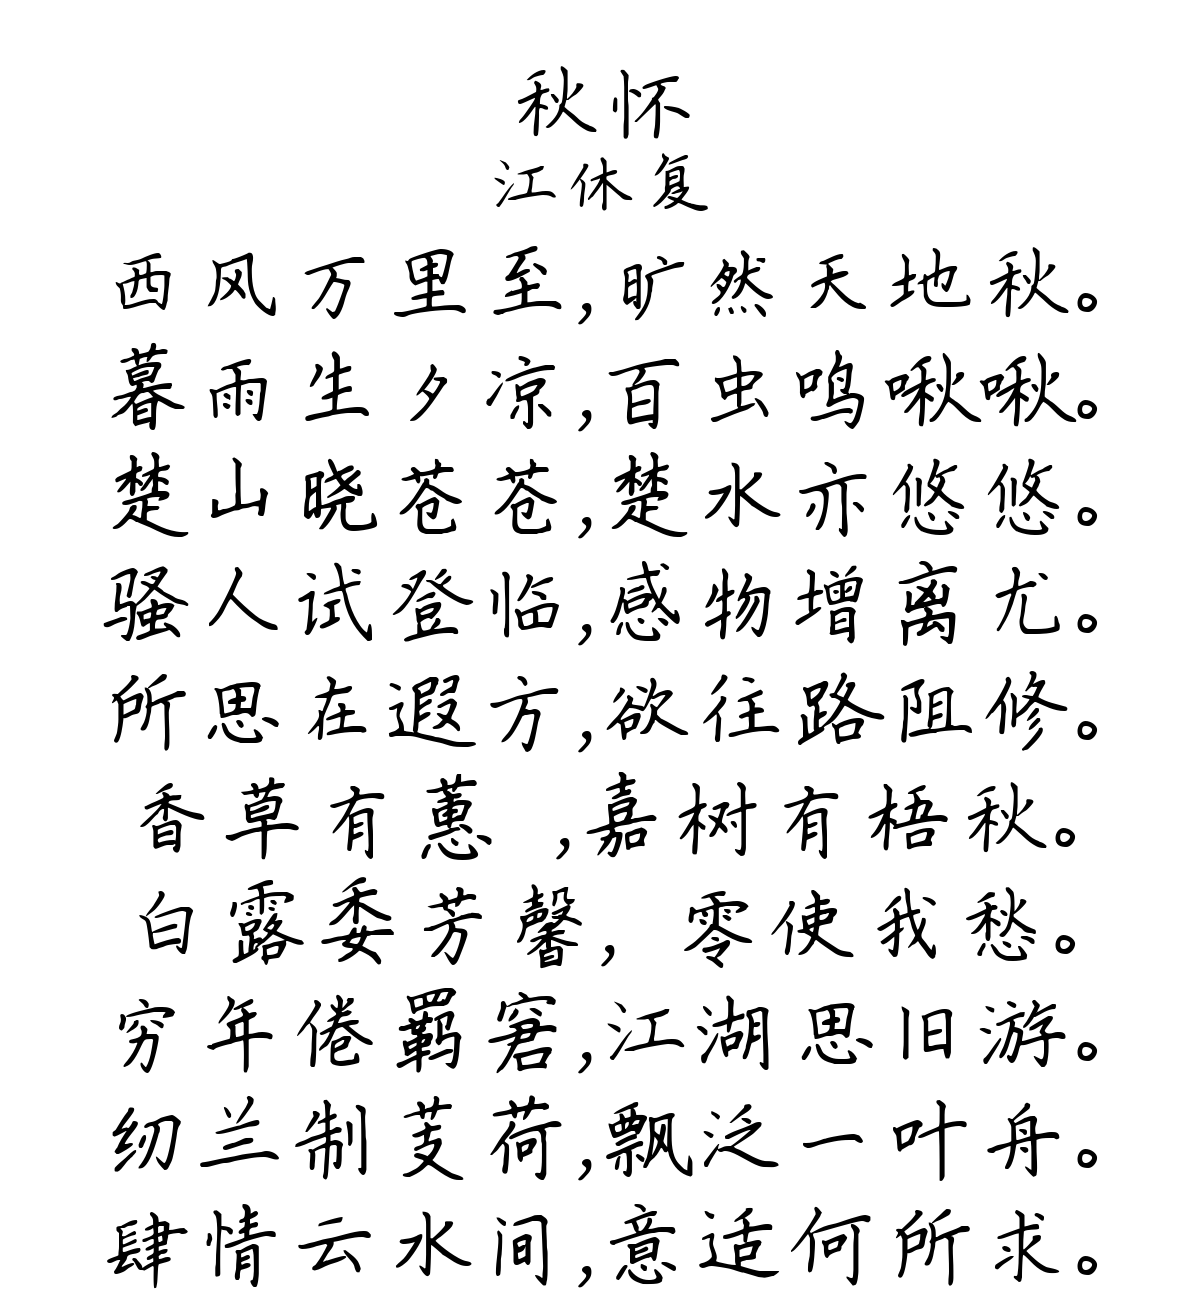 秋怀
江休复
西风万里至,旷然天地秋。
暮雨生夕凉,百虫鸣啾啾。
楚山晓苍苍,楚水亦悠悠。
骚人试登临,感物增离尤。
所思在遐方,欲往路阻修。
香草有蕙 ,嘉树有梧秋。
白露委芳馨, 零使我愁。
穷年倦羁窘,江湖思旧游。
纫兰制芰荷,飘泛一叶舟。
肆情云水间,意适何所求。